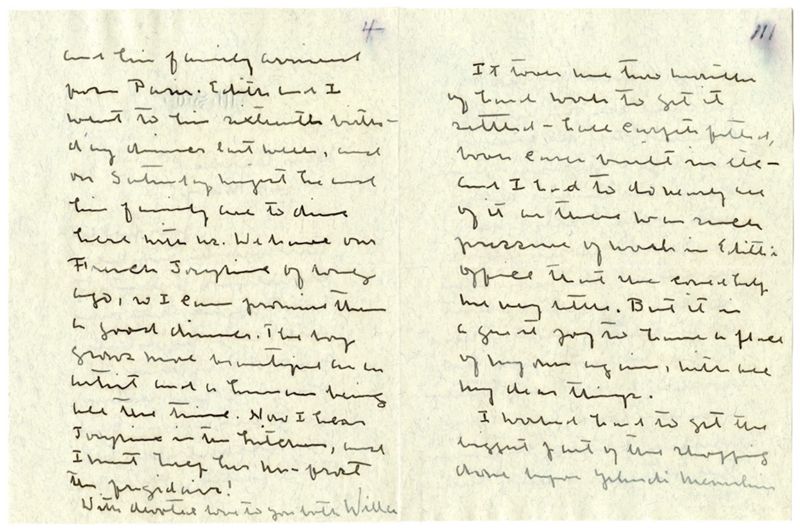 4
and his family arrived
from Paris. Edith and I
went to his sixteenth birth-
day dinner last week, and
on Saturday night he and
his family are to dine
here with us. We have our
French Josephine of long
ago, so I can promise them
a good dinner. The boy
grows more beautiful as an
artist and a human being
all the time. Now I hear
Josephine in the kitchen, and
I must help her un-frost
the frigidaire!
With devoted love to you both Willa
III
It took me two months
of hard work to get it
settled - had carpets fitted,
book cases built in etc -
and I had to do nearly all
of it as there was such
pressure of work in Edith's
office that she could help
me very little. But it is
a great joy to have a place
of my own again, with all
my dear things.
I worked hard to get the
biggest part of the shopping
done before Yehudi Menuhin